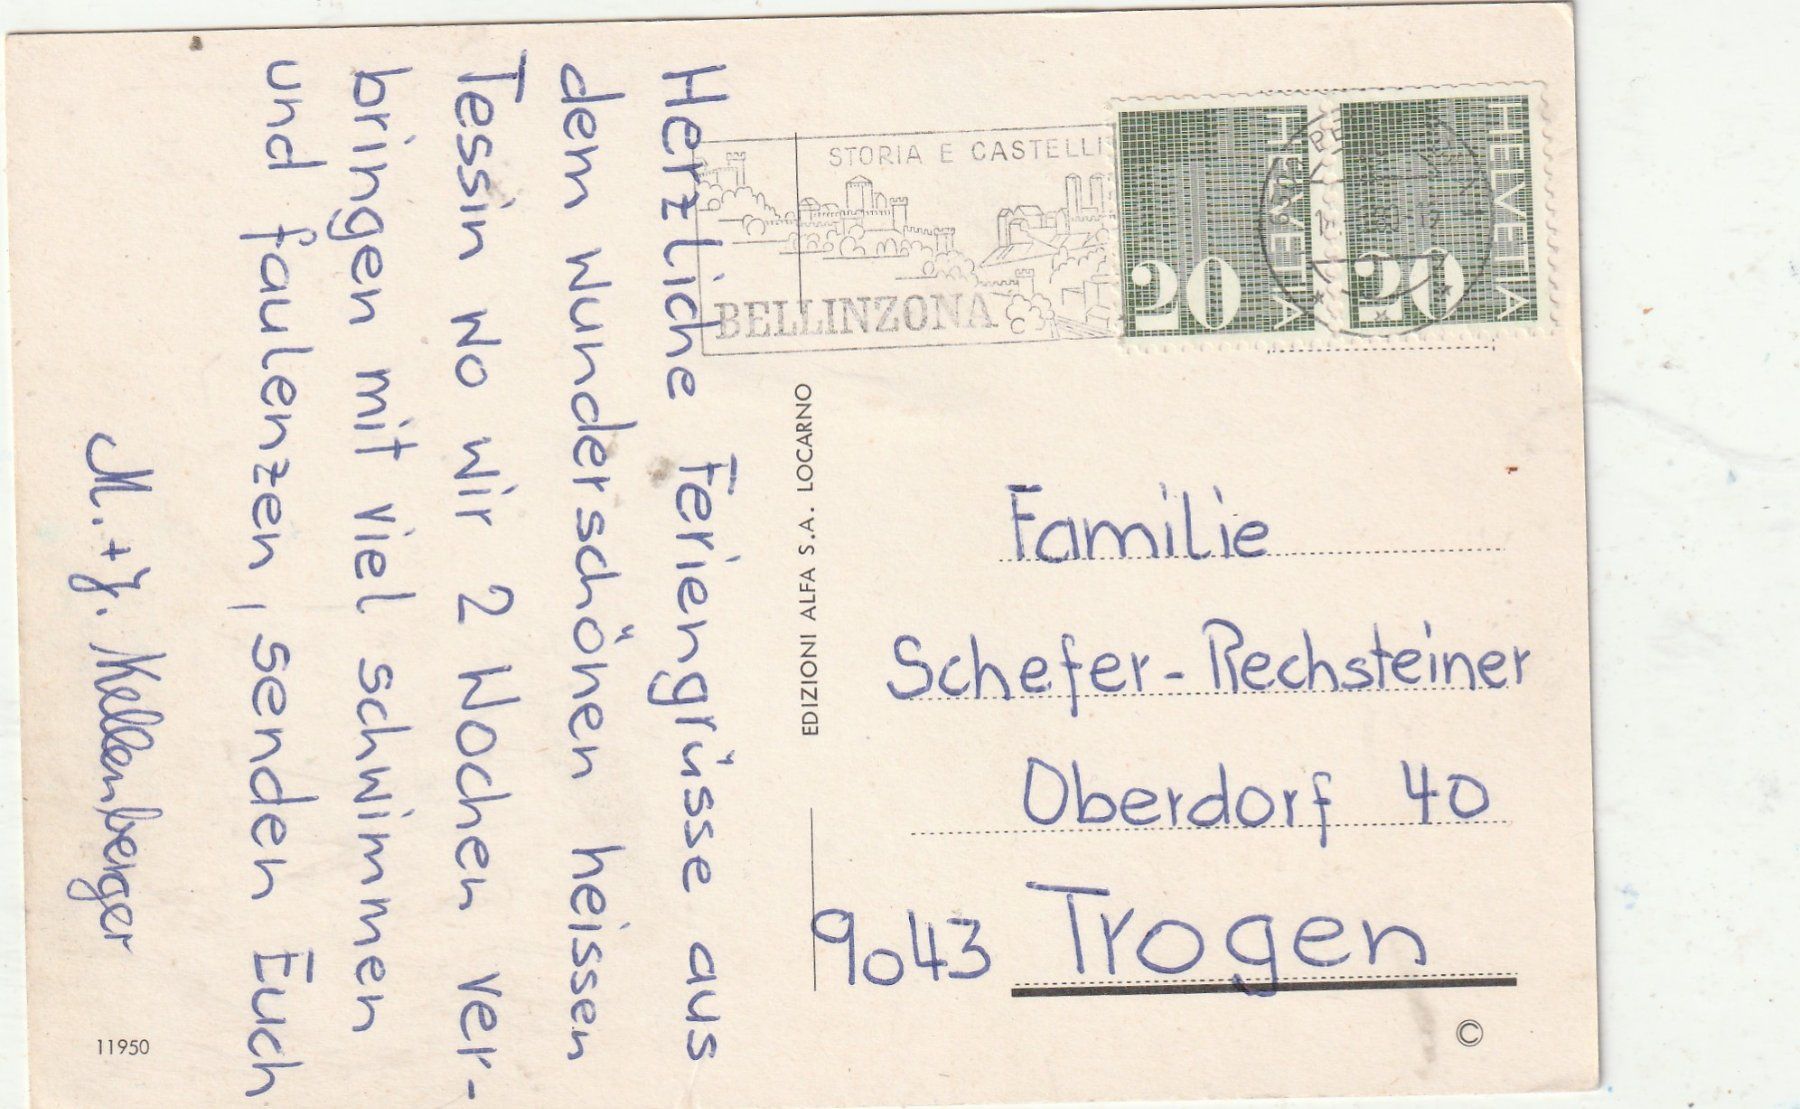 Herzliche Feriengrüsse aus
dem wunderschönen heissen
Tessin wo wir 2 Wochen ver-
bringen mit viel schwimmen
und faulenzen, senden Euch
M. + J. Kellenberger
11950
STORIA E CASTELLI
BELLINZONA
HELVETIA
20
HELVETIA
20
EDIZIONI ALFA S.A. LOCARNO
Familie
Schefer-Rechsteiner
Oberdorf 40
9043 Trogen
©